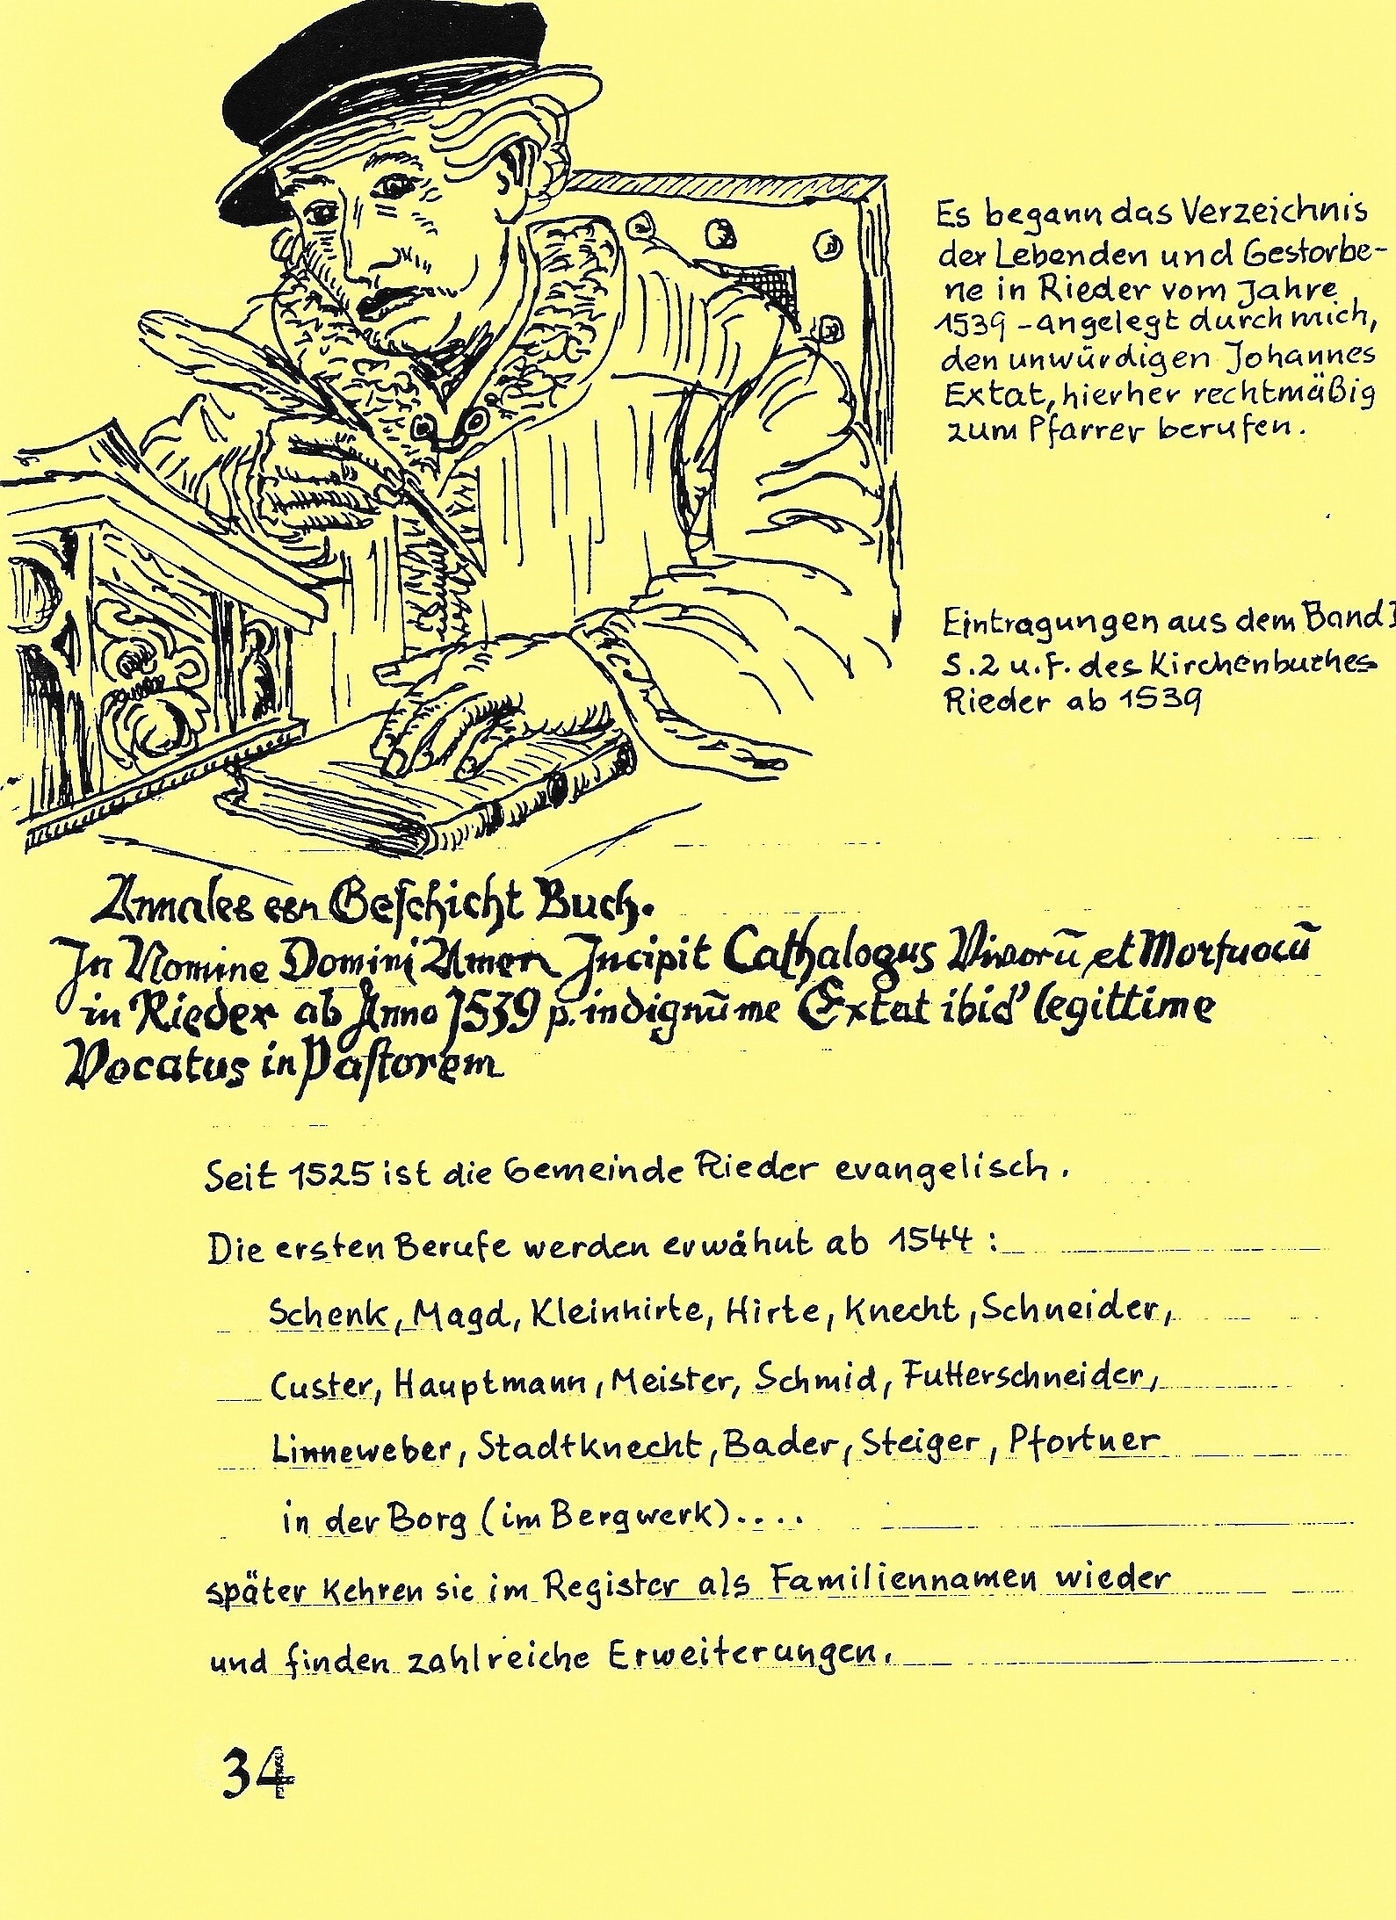 Es begann das Verzeichnis
der Lebenden und Gestorbe-
ne in Rieder vom Jahre
1539 - angelegt durch mich,
den unwürdigen Johannes
Extat, hierher rechtmäßig
zum Pfarrer berufen.
Eintragungen aus dem Band I
S. 2 u. f. des Kirchenbuches
Rieder ab 1539
Annales Geschicht Buch.
In Nomine Domini Amen Incipit Cathalogus Vivorū et Mortuorū
in Rieder ab Anno 1539 p. indignū me Extat ibid' legittime
Vocatus in Pastorem
Seit 1525 ist die Gemeinde Rieder evangelisch.
Die ersten Berufe werden erwähnt ab 1544 :
Schenk, Magd, Kleinhirte, Hirte, Knecht, Schneider,
Custer, Hauptmann, Meister, Schmid, Futterschneider,
Linneweber, Stadtknecht, Bader, Steiger, Pfortner
in der Borg (im Bergwerk)....
später kehren sie im Register als Familiennamen wieder
und finden zahlreiche Erweiterungen.
34